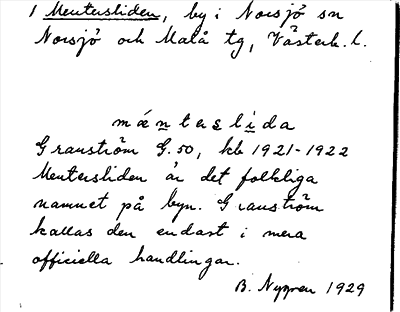 1 Mentersliden, by i Norsjö sn
Norsjö och Malå tg, Västerb. l.
mǽnterslida
Granström G. 50, kb 1921-1922
Mentersliden är det folkliga
namnet på byn. Granström
kallas den endast i mera
officiella handlingar.
B. Nygren 1929